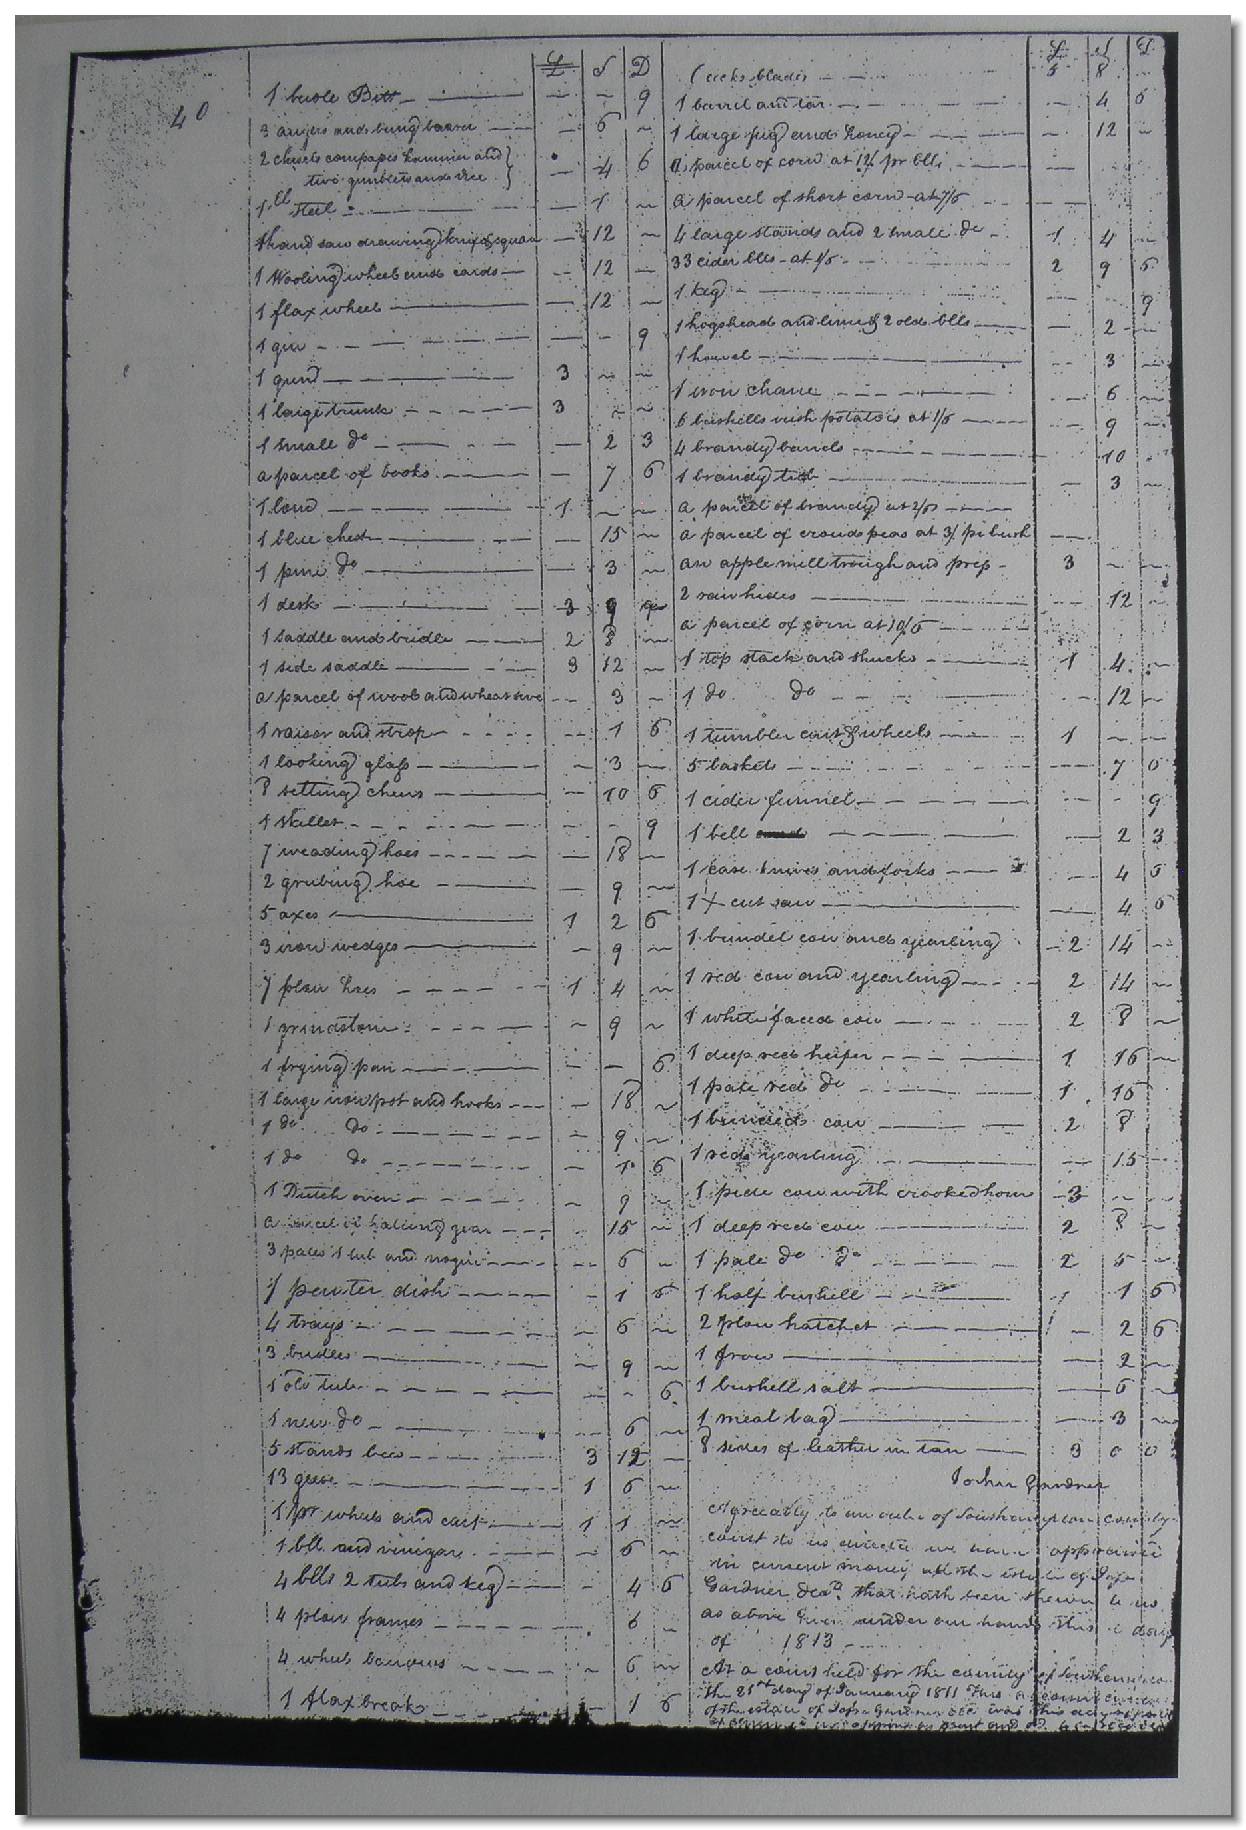 40
£ S D
1 brole Bitt 9
3 augers and bung borer 6
2 chisels compases hammer and 4 6
two gimblets and vice
1 ll steel 1
1 hand saw drawing knife & square 12
1 Wooling wheel and cards 12
1 flax wheel 12
1 gun 9
1 gun 3
1 large trunk 3
1 small do 2 3
a parcel of books 7 6
1 loom 1
1 blue chest 15
1 pine do 3
1 desk 3 9
1 saddle and bridle 2 8
1 side saddle 3 12
a parcel of wool and wheat sive 3
1 raisor and strop 1 6
1 looking glass 3
8 setting chers 10 6
1 skillet 9
7 weading hoes 18
2 grubing hoe 9
5 axes 1 2 6
3 iron wedges 9
7 plow hoes 1 4
1 grindstone 9
1 frying pan 6
1 large iron pot and hooks 18
1 do do 9
1 do do 1 6
1 Dutch oven 9
a parcel of halling gear 15
3 pales 1 tub and nogin 6
1 pewter dish 1 6
4 trays 6
3 bridles 9
1 old tub 6
1 new do 6
5 stands bees 3 12
13 geese 1 6
1 pr wheels and cart 1 1
1 bll and vinigar 6
4 blls 2 tubs and keg 4 6
4 plow frames 6
4 wheel barrows 6
1 flax break 1 6
£ S D
blades 5 8
1 barril and tar 4 6
1 large jug and honey 12
a parcel of corn at 12/ pr blls
a parcel of short corn at 7/6
4 large stands and 2 small do 1 4
33 cider blls at 1/6 2 9 6
1 keg 9
1 hogshead and lime & 2 old blls 2
1 3
1 iron 6
6 bushells irish potatoes at 1/6 9
4 brandy barrels 10
1 brandy tub 3
a parcel of brandy at 2/6
a parcel of peas at 3/ pr bush
an apple mill trough and press 3
2 raw hides 12
a parcel of corn at 10/6
1 top stack and shucks 1 4
1 do do 12
1 tumbler cart & wheels 1
5 baskets 7 6
1 cider funnel 9
1 bell 2 3
1 case knives and forks 4 6
1 X cut saw 4 6
1 brindel cow and yearling 2 14
1 red cow and yearling 2 14
1 white faced cow 2 8
1 deep red heifer 1 16
1 pale red do 1 15
1 cow 2 8
1 red yearling 15
1 pide cow with crooked horn 3
1 deep red cow 2 8
1 pale do do 2 5
1 half bushell 1 6
2 plow hatchet 2 6
1 frow 2
1 bushell salt 6
1 meal bag 3
8 sides of leather in tan 3 0 0
John Gardner
Agreeably to an order of Southampton county
court to us directed we have appraised
in current money all the estate of
Gardner decd. that hath been shewn to us
as above Given under our hands this day
of 1813
At a court held for the county of Southampton
the 21st day of January 1811 This
of the estate of Gardner decd was this day